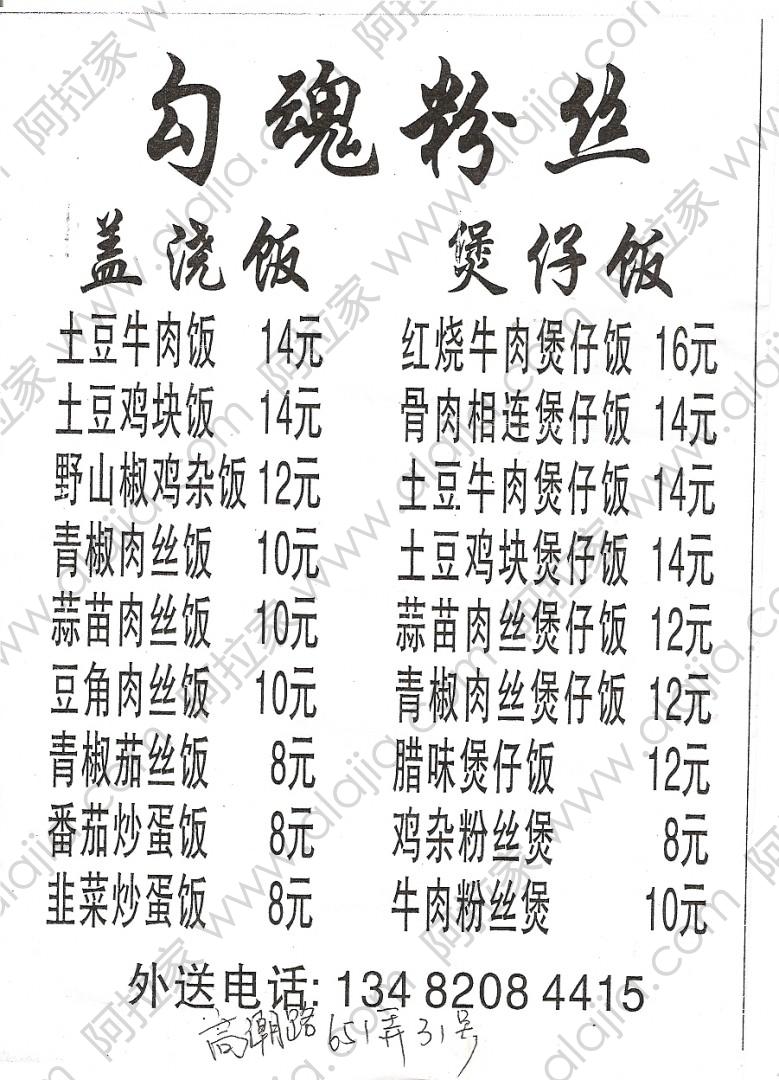 勾魂粉丝
盖浇饭
土豆牛肉饭 14元
土豆鸡块饭 14元
野山椒鸡杂饭 12元
青椒肉丝饭 10元
蒜苗肉丝饭 10元
豆角肉丝饭 10元
青椒茄丝饭 8元
番茄炒蛋饭 8元
韭菜炒蛋饭 8元
煲仔饭
红烧牛肉煲仔饭 16元
骨肉相连煲仔饭 14元
土豆牛肉煲仔饭 14元
土豆鸡块煲仔饭 14元
蒜苗肉丝煲仔饭 12元
青椒肉丝煲仔饭 12元
腊味煲仔饭 12元
鸡杂粉丝煲 8元
牛肉粉丝煲 10元
外送电话: 134 8208 4415
高潮路651弄31号
阿拉家 www.alajia.com